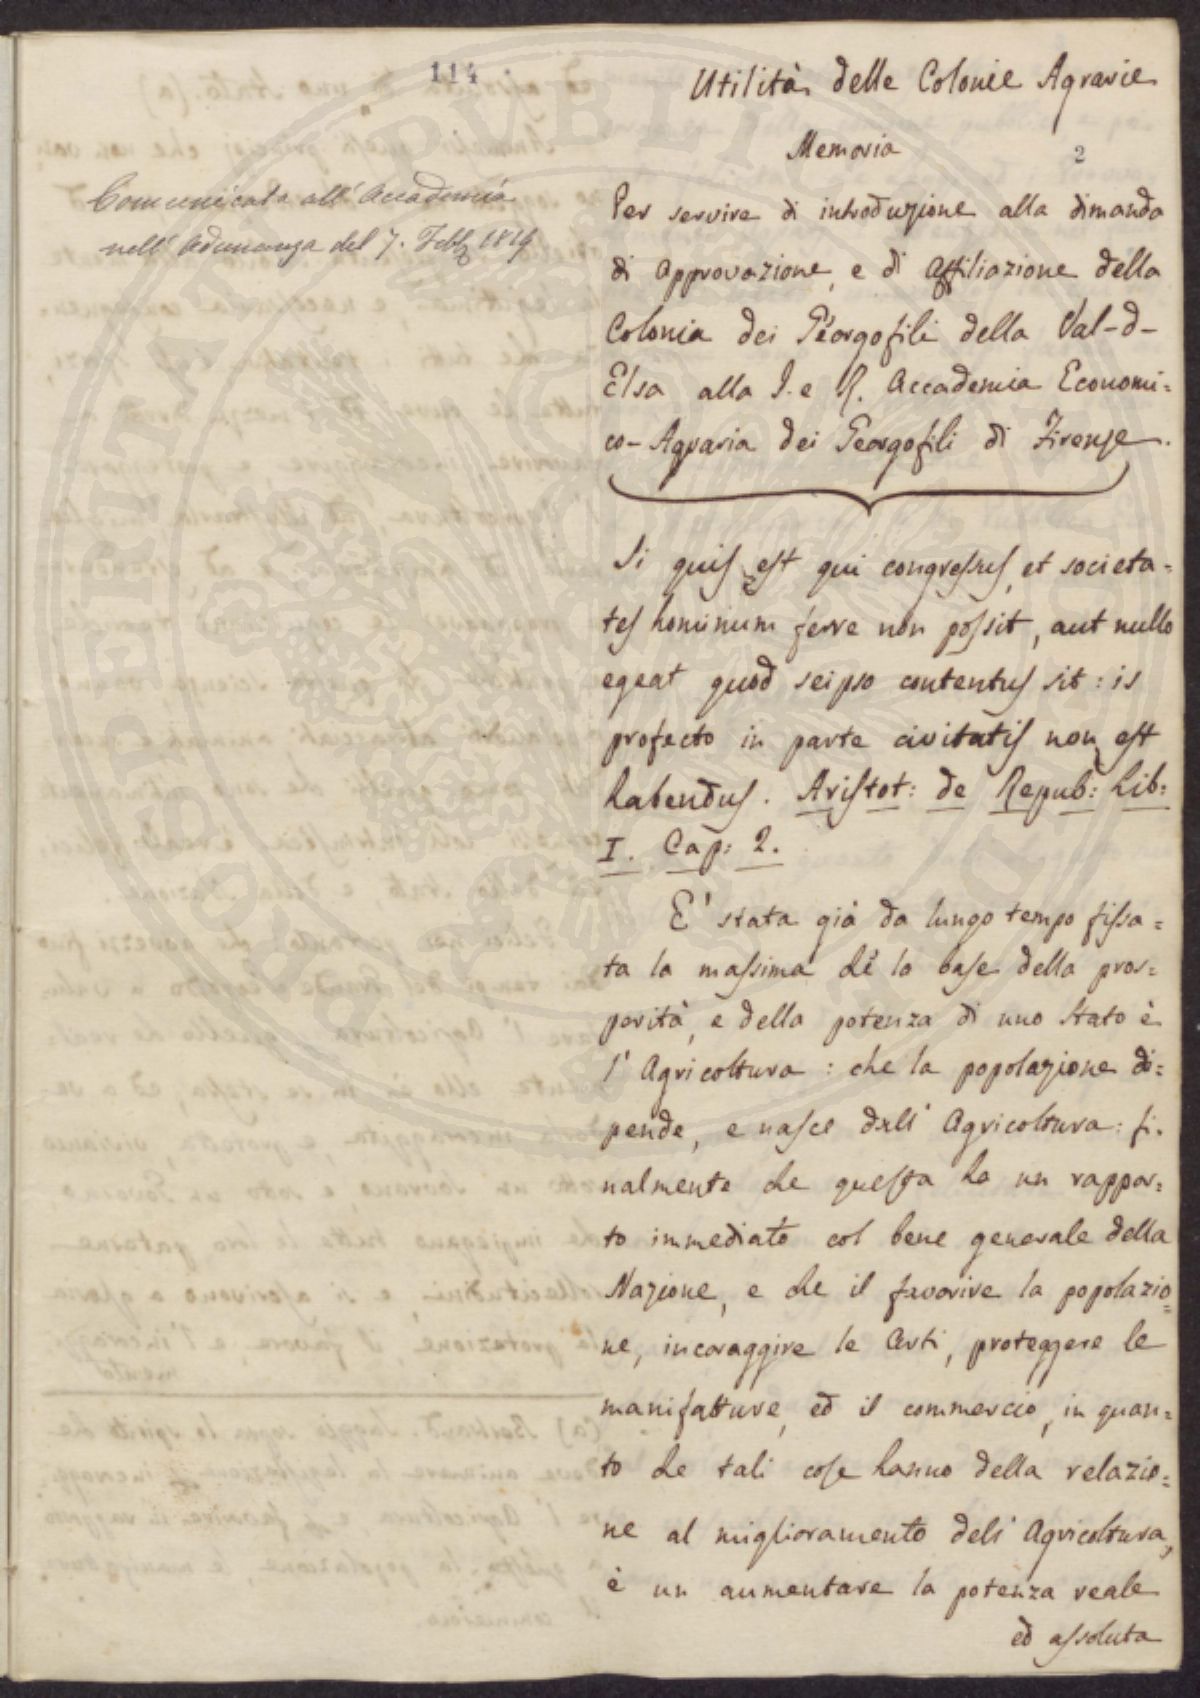 114
Utilità delle Colonie Agrarie
Memoria
2
Comunicata all' Accademia
nell' Adunanza del 7. Febb. 1819
Per servire di introduzione alla dimanda
di approvazione, e di affiliazione della
Colonia dei Georgofili della Val-d-
Elsa alla I. e R. Accademia Economi=
co-Agraria dei Georgofili di Firenze.
Si quis est qui congressus, et societa=
tes hominum ferre non possit, aut nullo
egeat quod seipso contentus sit: is
profecto in parte civitatis non est
habendus. Aristot: de Repub: Lib:
I. Cap: 2.
E' stata già da lungo tempo fissa=
ta la massima che la base della pros=
perità, e della potenza di uno Stato è
l' Agricoltura: che la popolazione di=
pende, e nasce dall' Agricoltura: fi=
nalmente che questa ha un rappor=
to immediato col bene generale della
Nazione, e che il favorire la popolazio=
ne, incoraggire le Arti, proteggere le
manifatture, ed il commercio, in quan=
to che tali cose hanno della relazio=
ne al miglioramento dell' Agricoltura,
è un aumentare la potenza reale
ed assoluta
PROSPERITATI PVBLI